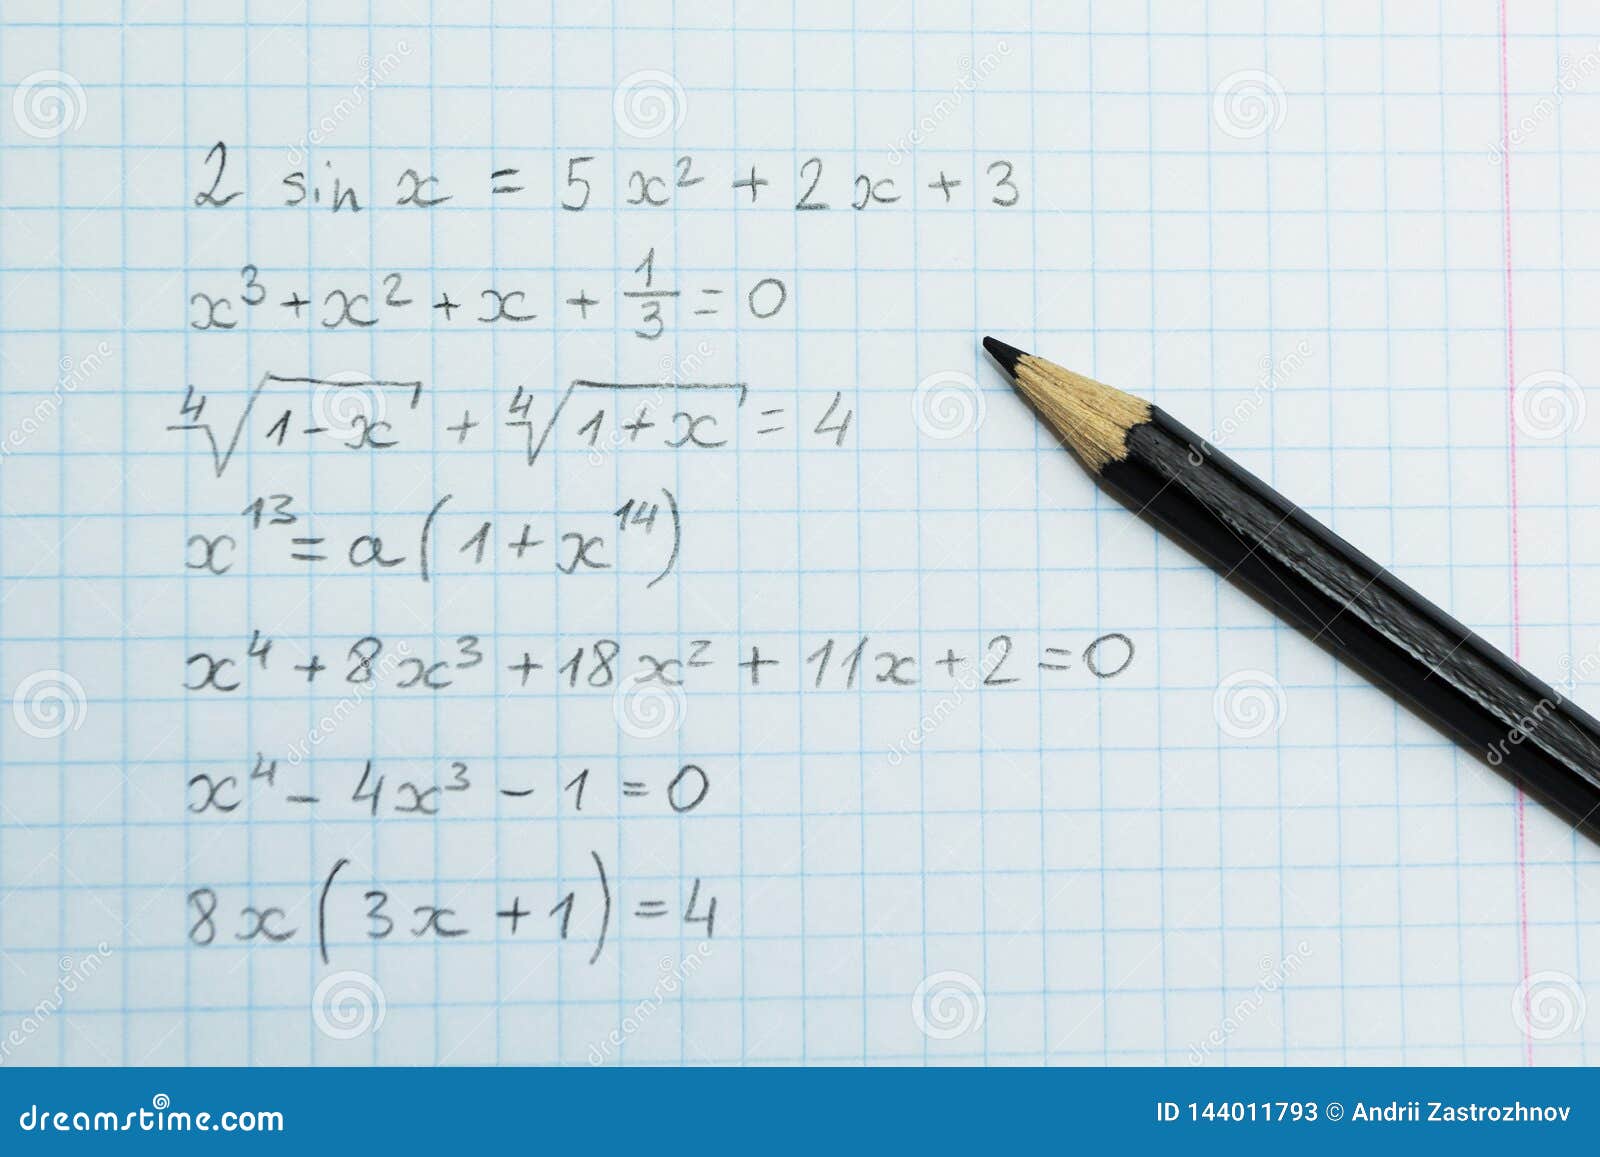 2 sin x = 5x² + 2x + 3
x³ + x² + x + 1/3 = 0
⁴√(1-x) + ⁴√(1+x) = 4
x¹³ = a(1 + x¹⁴)
x⁴ + 8x³ + 18x² + 11x + 2 = 0
x⁴ - 4x³ - 1 = 0
8x(3x + 1) = 4
dreamstime.com
ID 144011793 © Andrii Zastrozhnov